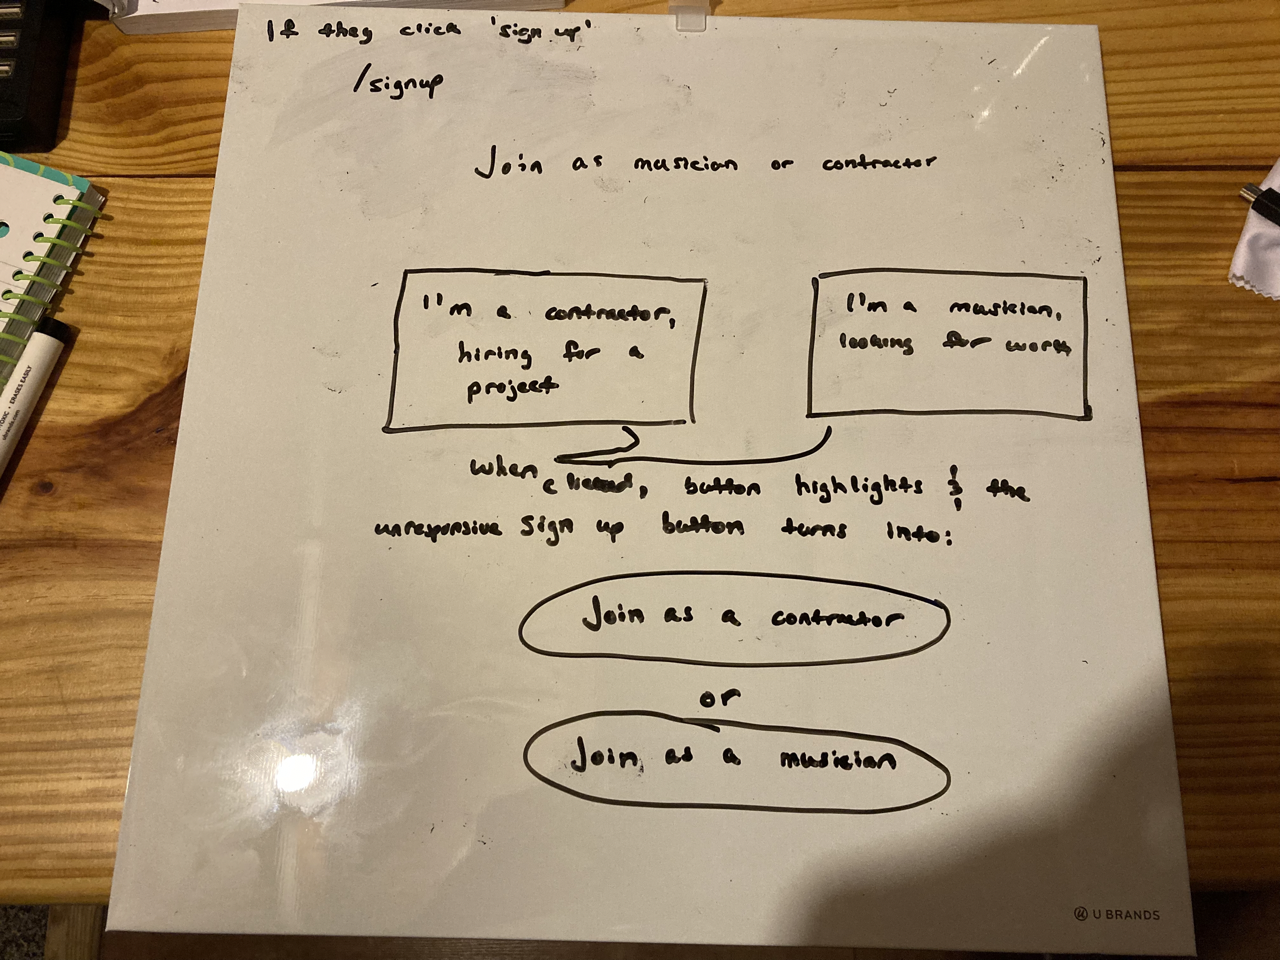 If they click 'sign up'
/signup
Join as musician or contractor
I'm a contractor,
hiring for a
project
I'm a musician,
looking for work
When clicked, button highlights & the
unresponsive sign up button turns into:
Join as a contractor
or
Join as a musician
U BRANDS
ERASES EASILY
ubrands.com